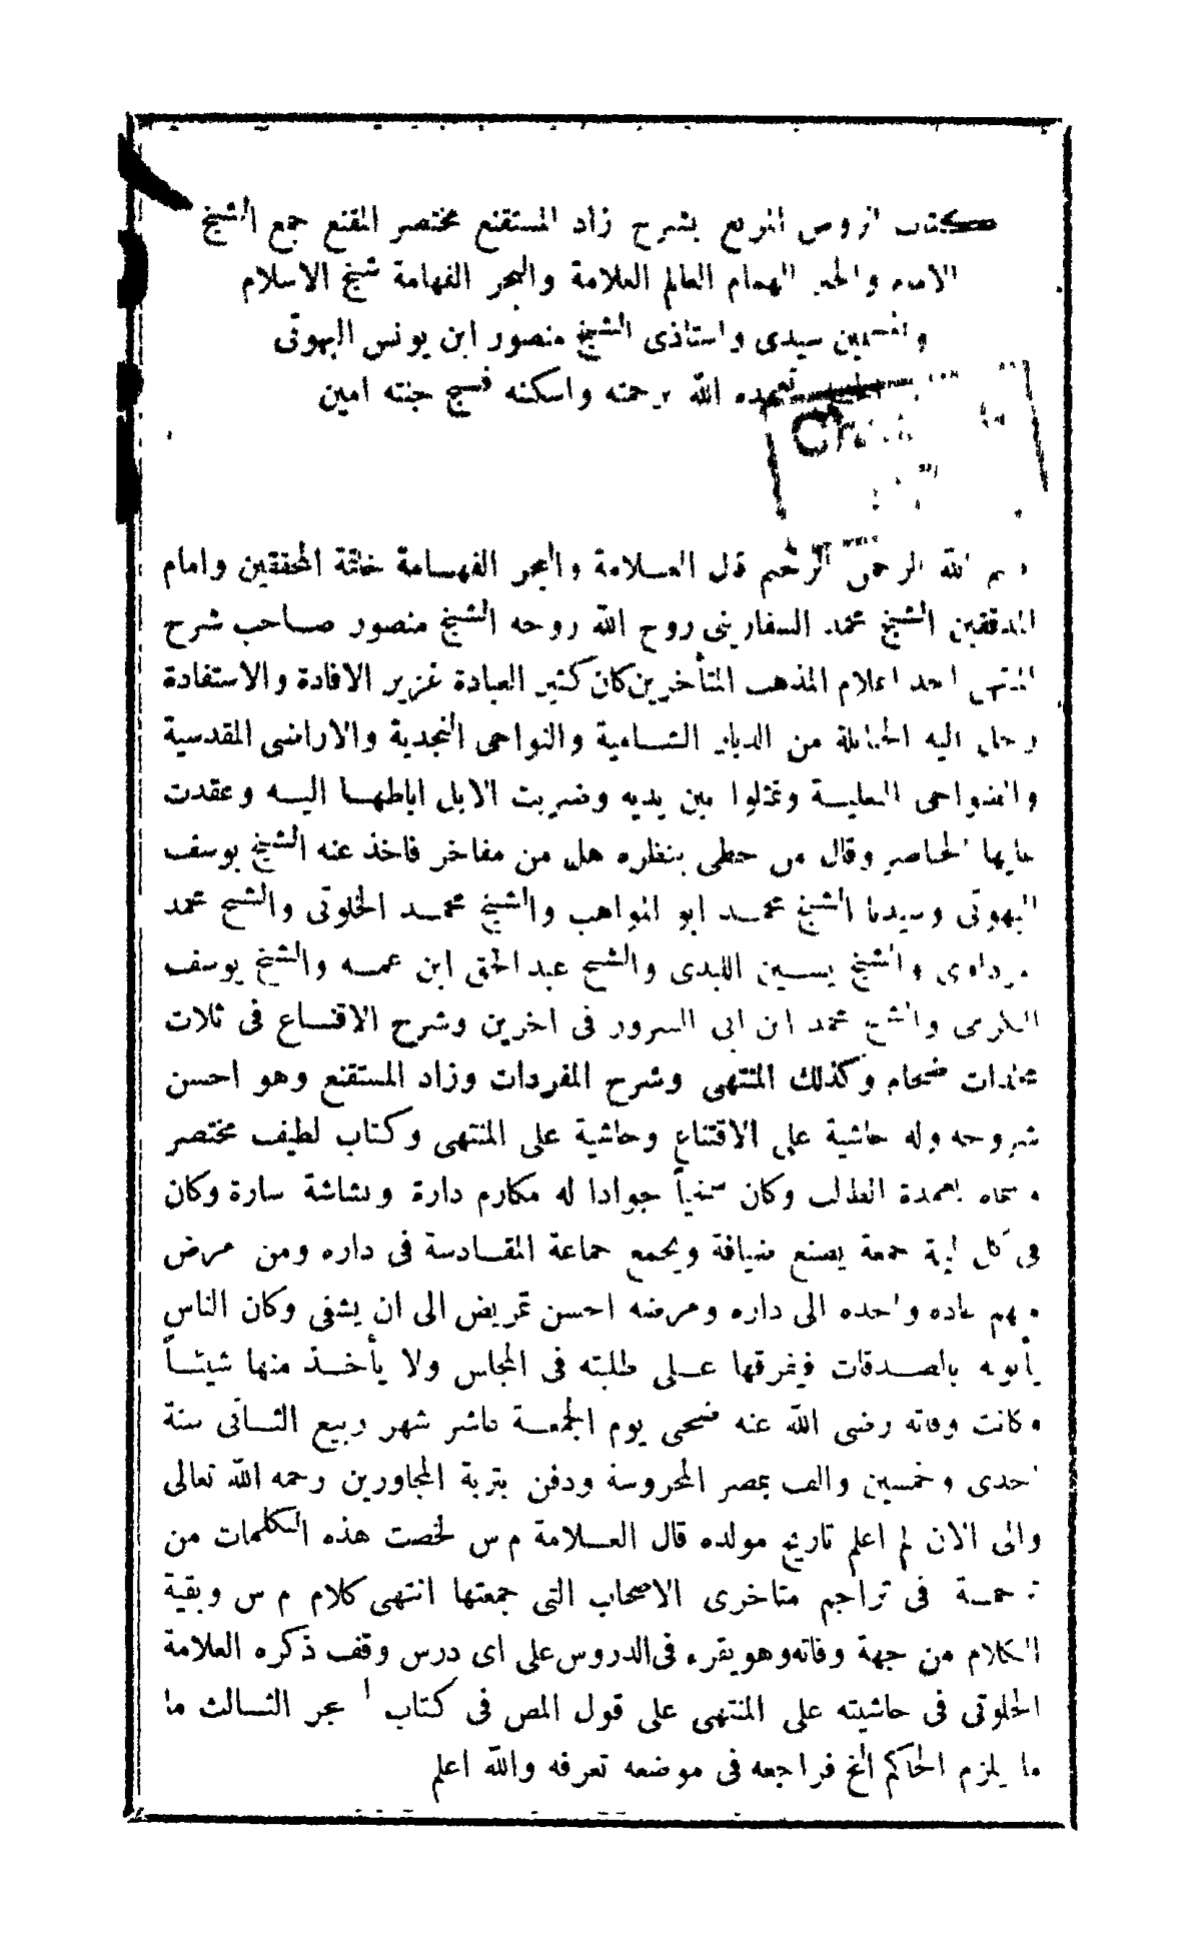 كتاب الروض المربع بشرح زاد المستقنع مختصر المقنع جمع الشيخ
الامام والحبر الهمام العالم العلامة والبحر الفهامة شيخ الاسلام
والمسلمين سيدى واستاذى الشيخ منصور ابن يونس البهوتى
تغمده الله برحمته واسكنه فسيح جنته امين
بسم الله الرحمن الرحيم قال العلامة والبحر الفهامة خاتمة المحققين وامام
المدققين الشيخ محمد السفارينى روح الله روحه الشيخ منصور صاحب شرح
المنتهى احد اعلام المذهب المتأخرين كان كثير العبادة غزير الافادة والاستفادة
رحل اليه الحنابلة من الديار الشامية والنواحى النجدية والاراضى المقدسية
والضواحى البعلية وتمثلوا بين يديه وضربت الابل اباطها اليه وعقدت
عليها الخناصر وقال من حظى بنظره هل من مفاخر فاخذ عنه الشيخ يوسف
البهوتى وسيدنا الشيخ محمد ابو المواهب والشيخ محمد الخلوتى والشيخ محمد
مرداوى والشيخ يسين اللبدى والشيخ عبد الحق ابن عمه والشيخ يوسف
الكرمى والشيخ محمد ابن ابى السرور فى اخرين وشرح الاقناع فى ثلاث
مجلدات ضخام وكذلك المنتهى وشرح المفردات وزاد المستقنع وهو احسن
شروحه وله حاشية على الاقتناع وحاشية على المنتهى وكتاب لطيف مختصر
وسماه بعمدة الطالب وكان سخياً جوادا له مكارم دارة وبشاشة سارة وكان
فى كل ليلة جمعة يصنع ضيافة ويجمع جماعة المقادسة فى داره ومن مرض
منهم عاده واخذه الى داره ومرضه احسن تمريض الى ان يشفى وكان الناس
يأتونه بالصدقات فيفرقها على طلبته فى المجلس ولا يأخذ منها شيئاً
وكانت وفاته رضى الله عنه ضحى يوم الجمعة عاشر شهر ربيع الثانى سنة
احدى وخمسين والف بمصر المحروسة ودفن بتربة المجاورين رحمه الله تعالى
والى الان لم اعلم تاريخ مولده قال العلامة م س لخصت هذه الكلمات من
ترجمة فى تراجم متاخرى الاصحاب التى جمعتها انتهى كلام م س وبقية
الكلام من جهة وفاته وهو يقرء فى الدروس على اى درس وقف ذكره العلامة
الخلوتى فى حاشيته على المنتهى على قول المص فى كتاب الحجر الثالث ما
ما يلزم الحاكم الخ فراجعه فى موضعه تعرفه والله اعلم